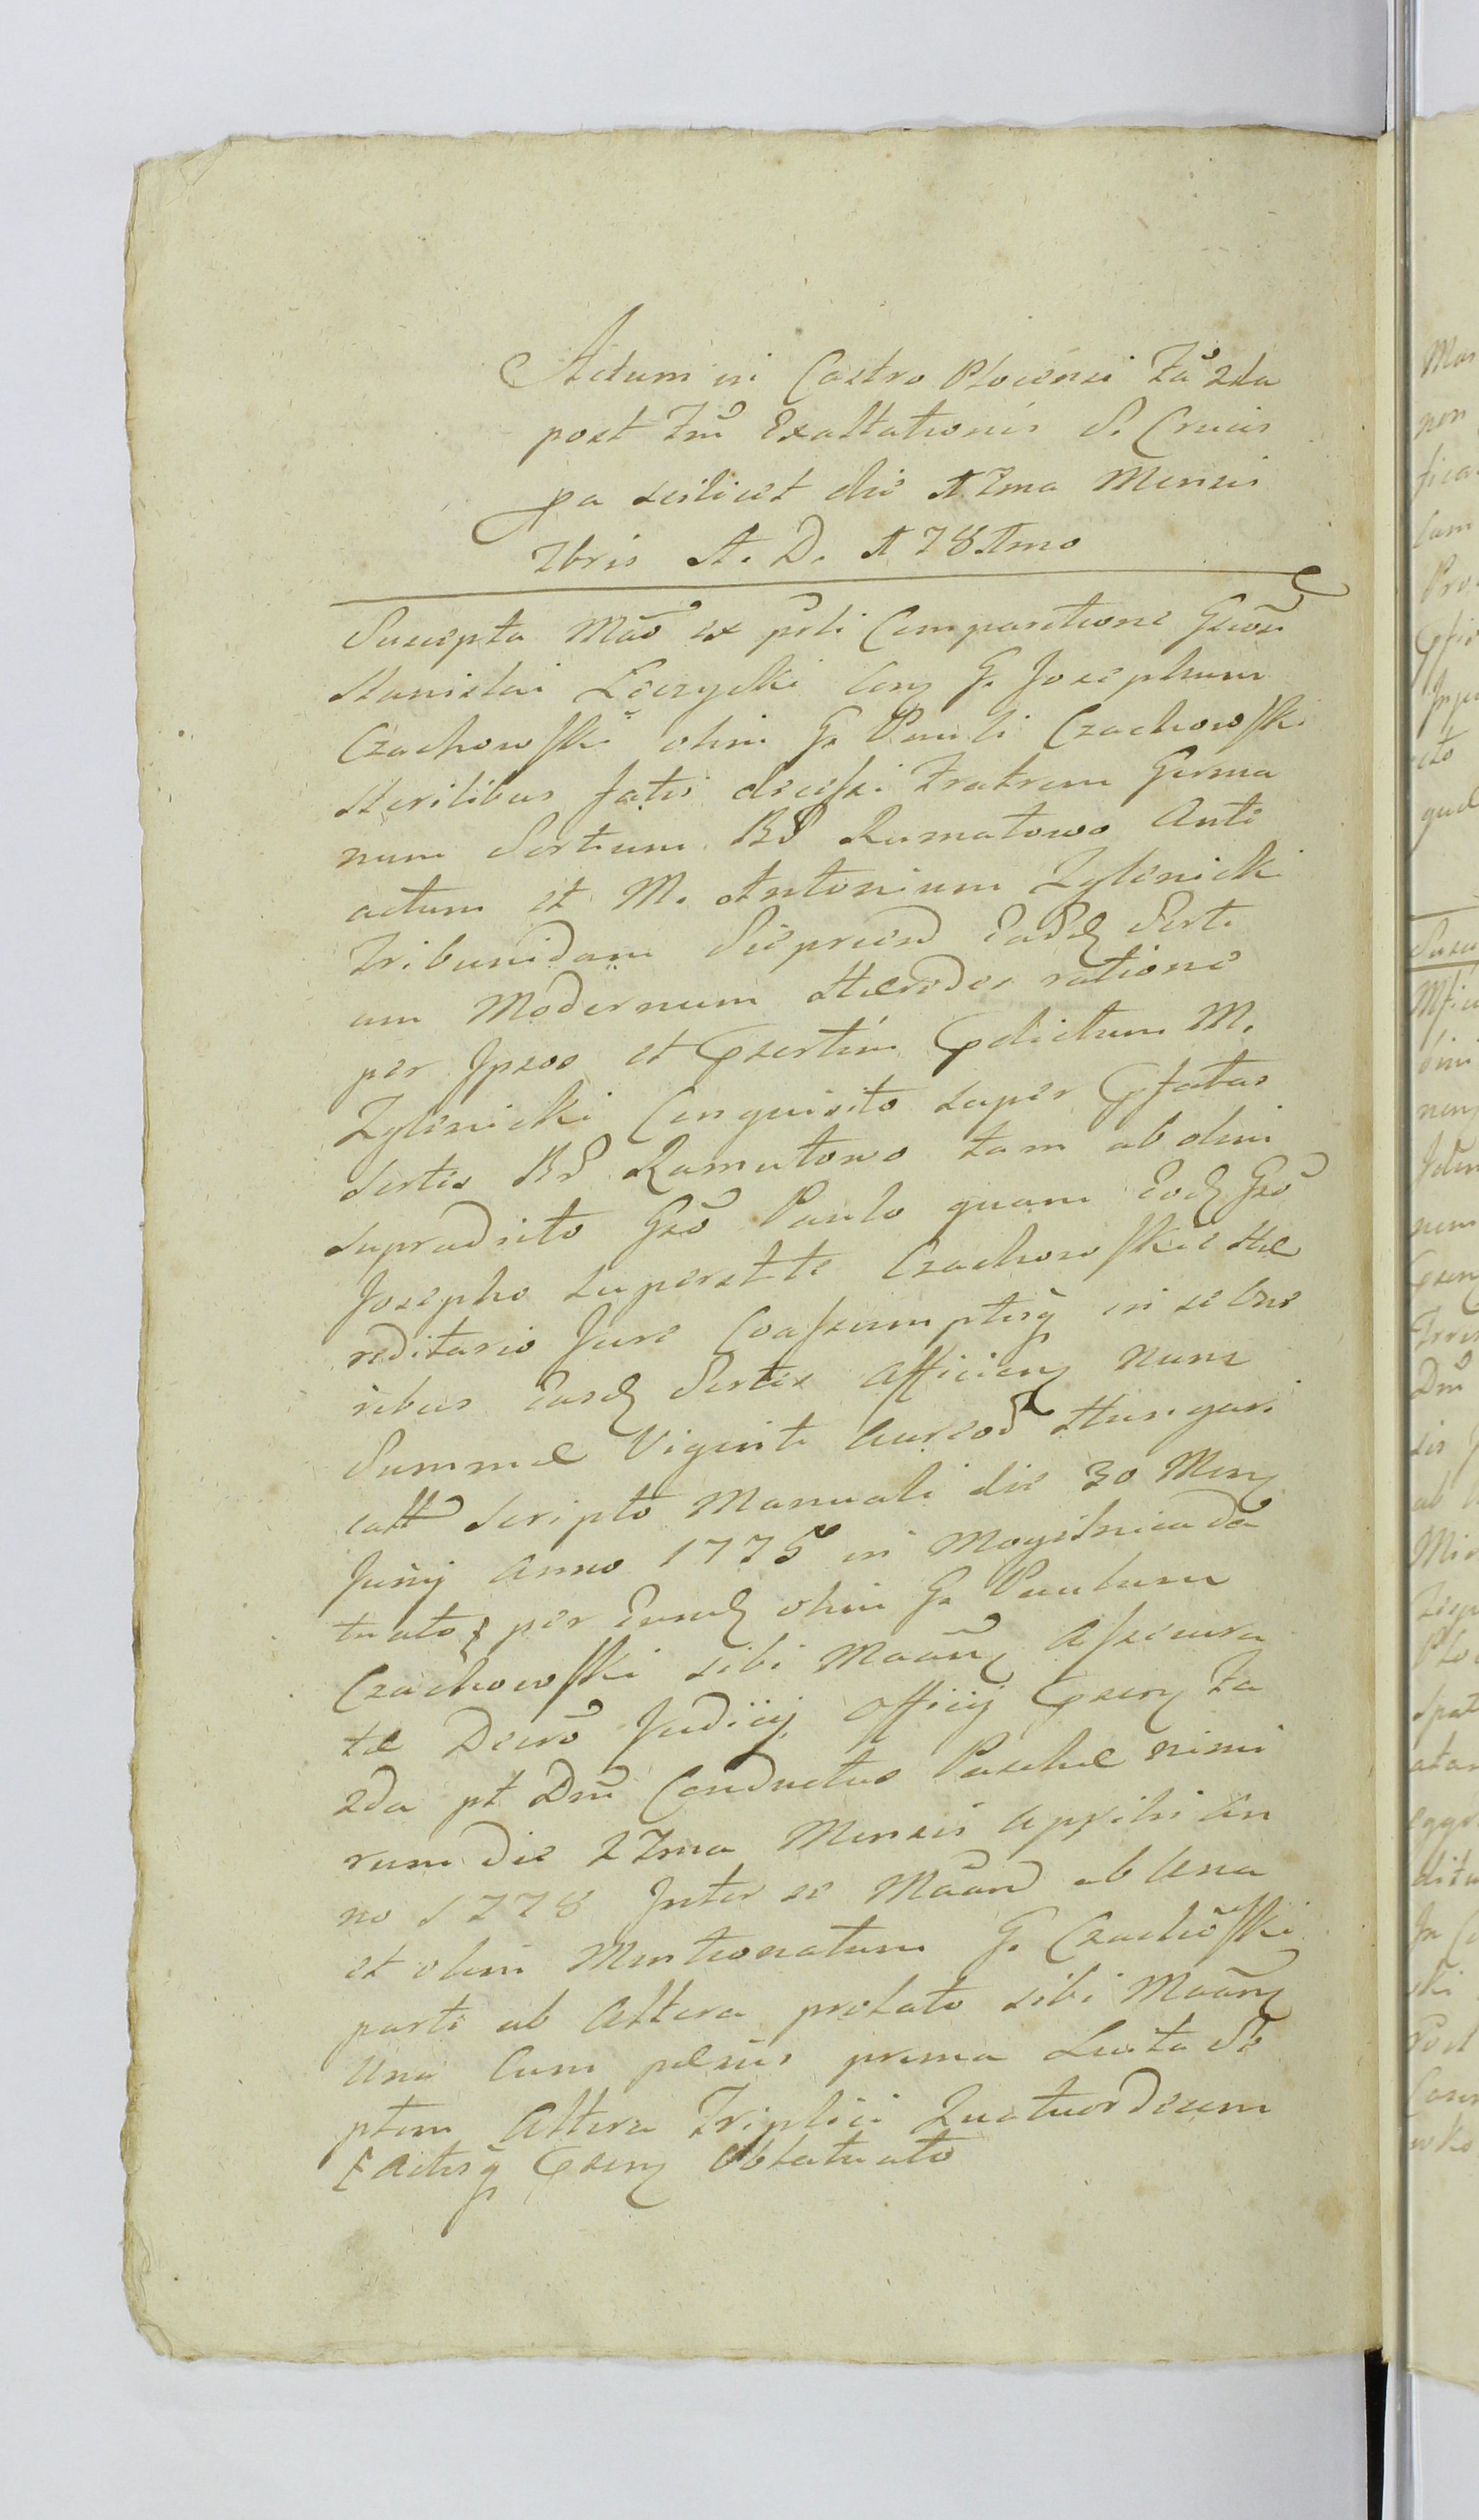 Actum in Castro Plocensi Fã 2da
post Fm̃ Exaltationis S. Crucis
pa scilicet die 17ma Mensis
7bris A. D. 1781mo
Suscepta Mão ex pñli Comparitione Gsor̃
Stanislai Łęczycki Con̨ G. Josephum
Czachowski olim G. Pauli Czachowski
Sterilibus fatis decessi Fratrem Germa
num Sortium BB Rumatowo Ante
actum et M. Antonium Zglenicki
Tribunidam Sieprien̄ Eadɇ Sorti
um Modernum Hæredes ratione
per Ipsos et psertim pdictum M.
Zglenicki Conquisito super pfatas
Sortes BB Ramutowo tam ab olim
supradicto Gso Paulo quam Eodɇ Gso
Josepho superstte Czachowskie Hæ
reditario Jure Coassumptisq̨ in se One
ribus Easdɇ Sortes Afficien̨ nunc
Summæ Viginti Aureoɍ Hungari
catt Scripto Manuali die 30 Men̨
Junij Anno 1775 in Mogilnica Da
tuato per Eundɇ olim G. Paulum
Czachowski sibi Maañ Assecura
tæ Decro Judicij Officij psen̨ Fa
2da pt Dm̃ Conductus Paschæ nimi
rum die 27ma Mensis Aprilis An
no 1778 Inter se Maañ ab Una
et olim Mentionatum G. Czachoski
parte ab Altera prolato sibi Maañ
Una Cum pænis prima Luita Se
ptem Altera Triplici Quatuordecem
Actisq̨ psen̨ Oblatuato
Mar
non
fica
cto
Susc
nem
Drũ
ab
ski